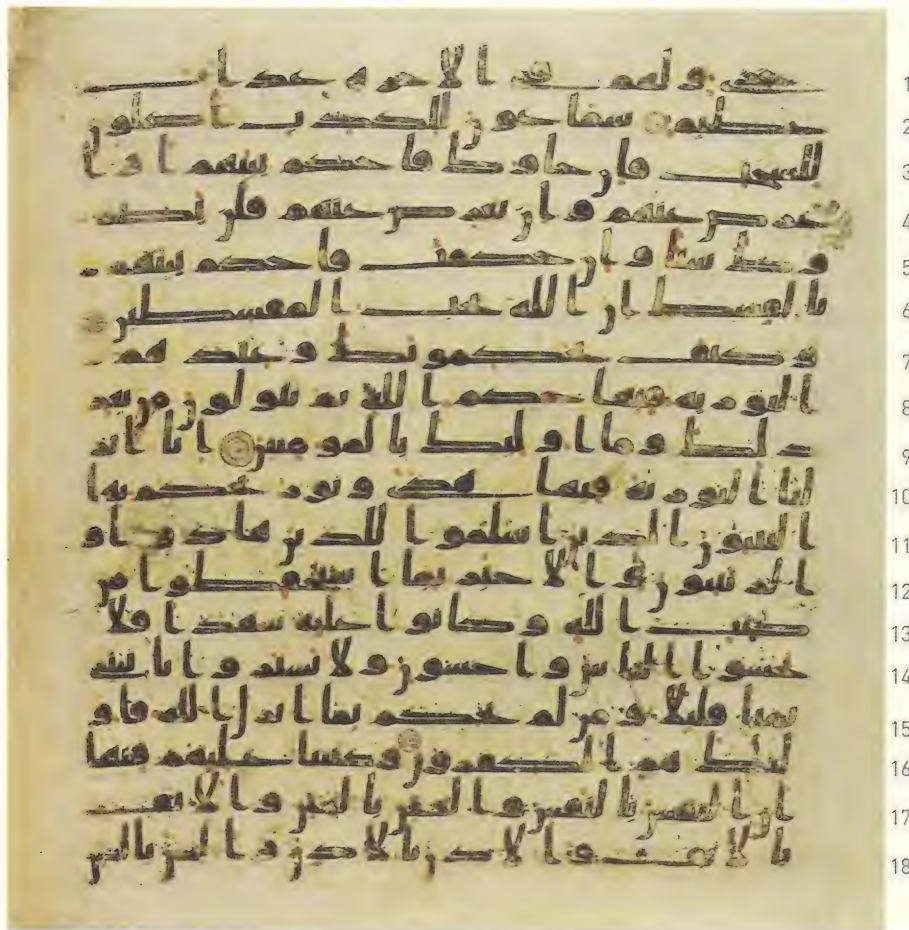 خزي ولهم في الاخرة عذاب 1
عظيم سمعون للكذب اكلون 2
للسحت فان جاوك فاحكم بينهم او ا 3
عرض عنهم وان تعرض عنهم فلن يضر 4
وك شيا وان حكمت فاحكم بينهم 5
بالقسط ان الله يحب المقسطين 6
وكيف يحكمونك وعندهم 7
التورية فيها حكم الله ثم يتولون من بعد 8
ذلك وما اوليك بالمومنين انا انز 9
لنا التورية فيها هدى ونور يحكم بها 10
النبيون الذين اسلموا للذين هادوا و 11
الربنيون والاحبار بما استحفظوا من 12
كتب الله وكانوا عليه شهدا فلا 13
تخشوا الناس واخشون ولا تشتروا بايتي 14
ثمنا قليلا ومن لم يحكم بما انزل الله فاو 15
ليك هم الكفرون وكتبنا عليهم فيها 16
ان النفس بالنفس والعين بالعين والانف 17
بالانف والاذن بالاذن والسن بالسن 18